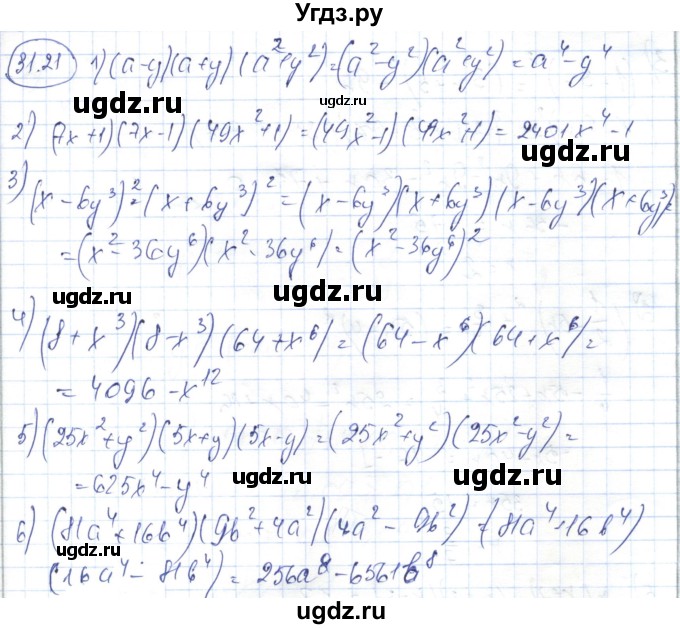 Угдз.ру
31.21 1) (a-y)(a+y)(a²+y²)=(a²-y²)(a²+y²)=a⁴-y⁴
ugdz.ru ugdz.ru
2) (7x+1)(7x-1)(49x²+1)=(49x²-1)(49x²+1)=2401x⁴-1
ugdz.ru ugdz.ru
3) (x-6y³)²·(x+6y³)²=(x-6y³)(x+6y³)(x-6y³)(x+6y³)=
=(x²-36y⁶)(x²-36y⁶)=(x²-36y⁶)²
ugdz.ru ugdz.ru
4) (8+x³)(8-x³)(64+x⁶)=(64-x⁶)(64+x⁶)=
=4096-x¹²
ugdz.ru ugdz.ru
5) (25x²+y²)(5x+y)(5x-y)=(25x²+y²)(25x²-y²)=
=625x⁴-y⁴
ugdz.ru ugdz.ru
6) (81a⁴+16b⁴)(9b²+4a²)(4a²-9b²)=(81a⁴+16b⁴)
(16a⁴-81b⁴)=256a⁸-6561b⁸
ugdz.ru ugdz.ru